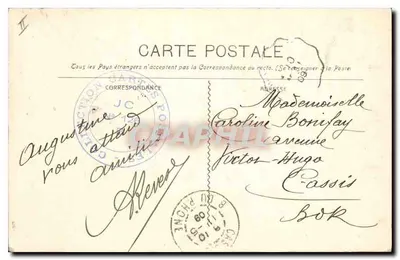 II
CARTE POSTALE
Tous les Pays étrangers n'acceptent pas la Correspondance au recto. (Se renseigner à la Poste)
CORRESPONDANCE
ADRESSE
COLLECTION CARTES POSTALES
JC
Augustine
vous attend
amitiés
Mademoiselle
Caroline Bonifay
avenue
Victor-Hugo
Cassis
BdR
B. DU RHONE
09